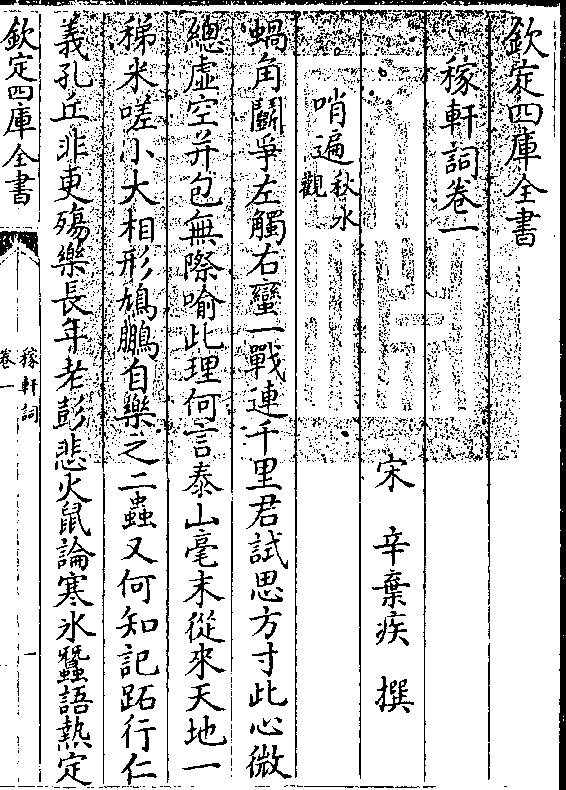 欽定四庫全書
稼軒詞卷一
宋 辛棄疾 撰
哨遍 秋水觀
蝸角鬭爭左觸右蠻一戰連千里君試思方寸此心微
總虛空并包無際喻此理何言泰山毫末從來天地一
稊米嗟小大相形鳩鵬自樂之二蟲又何知記跖行仁
義孔丘非更殤樂長年老彭悲火鼠論寒氷蠶語熱定
欽定四庫全書
稼軒詞
卷一
一